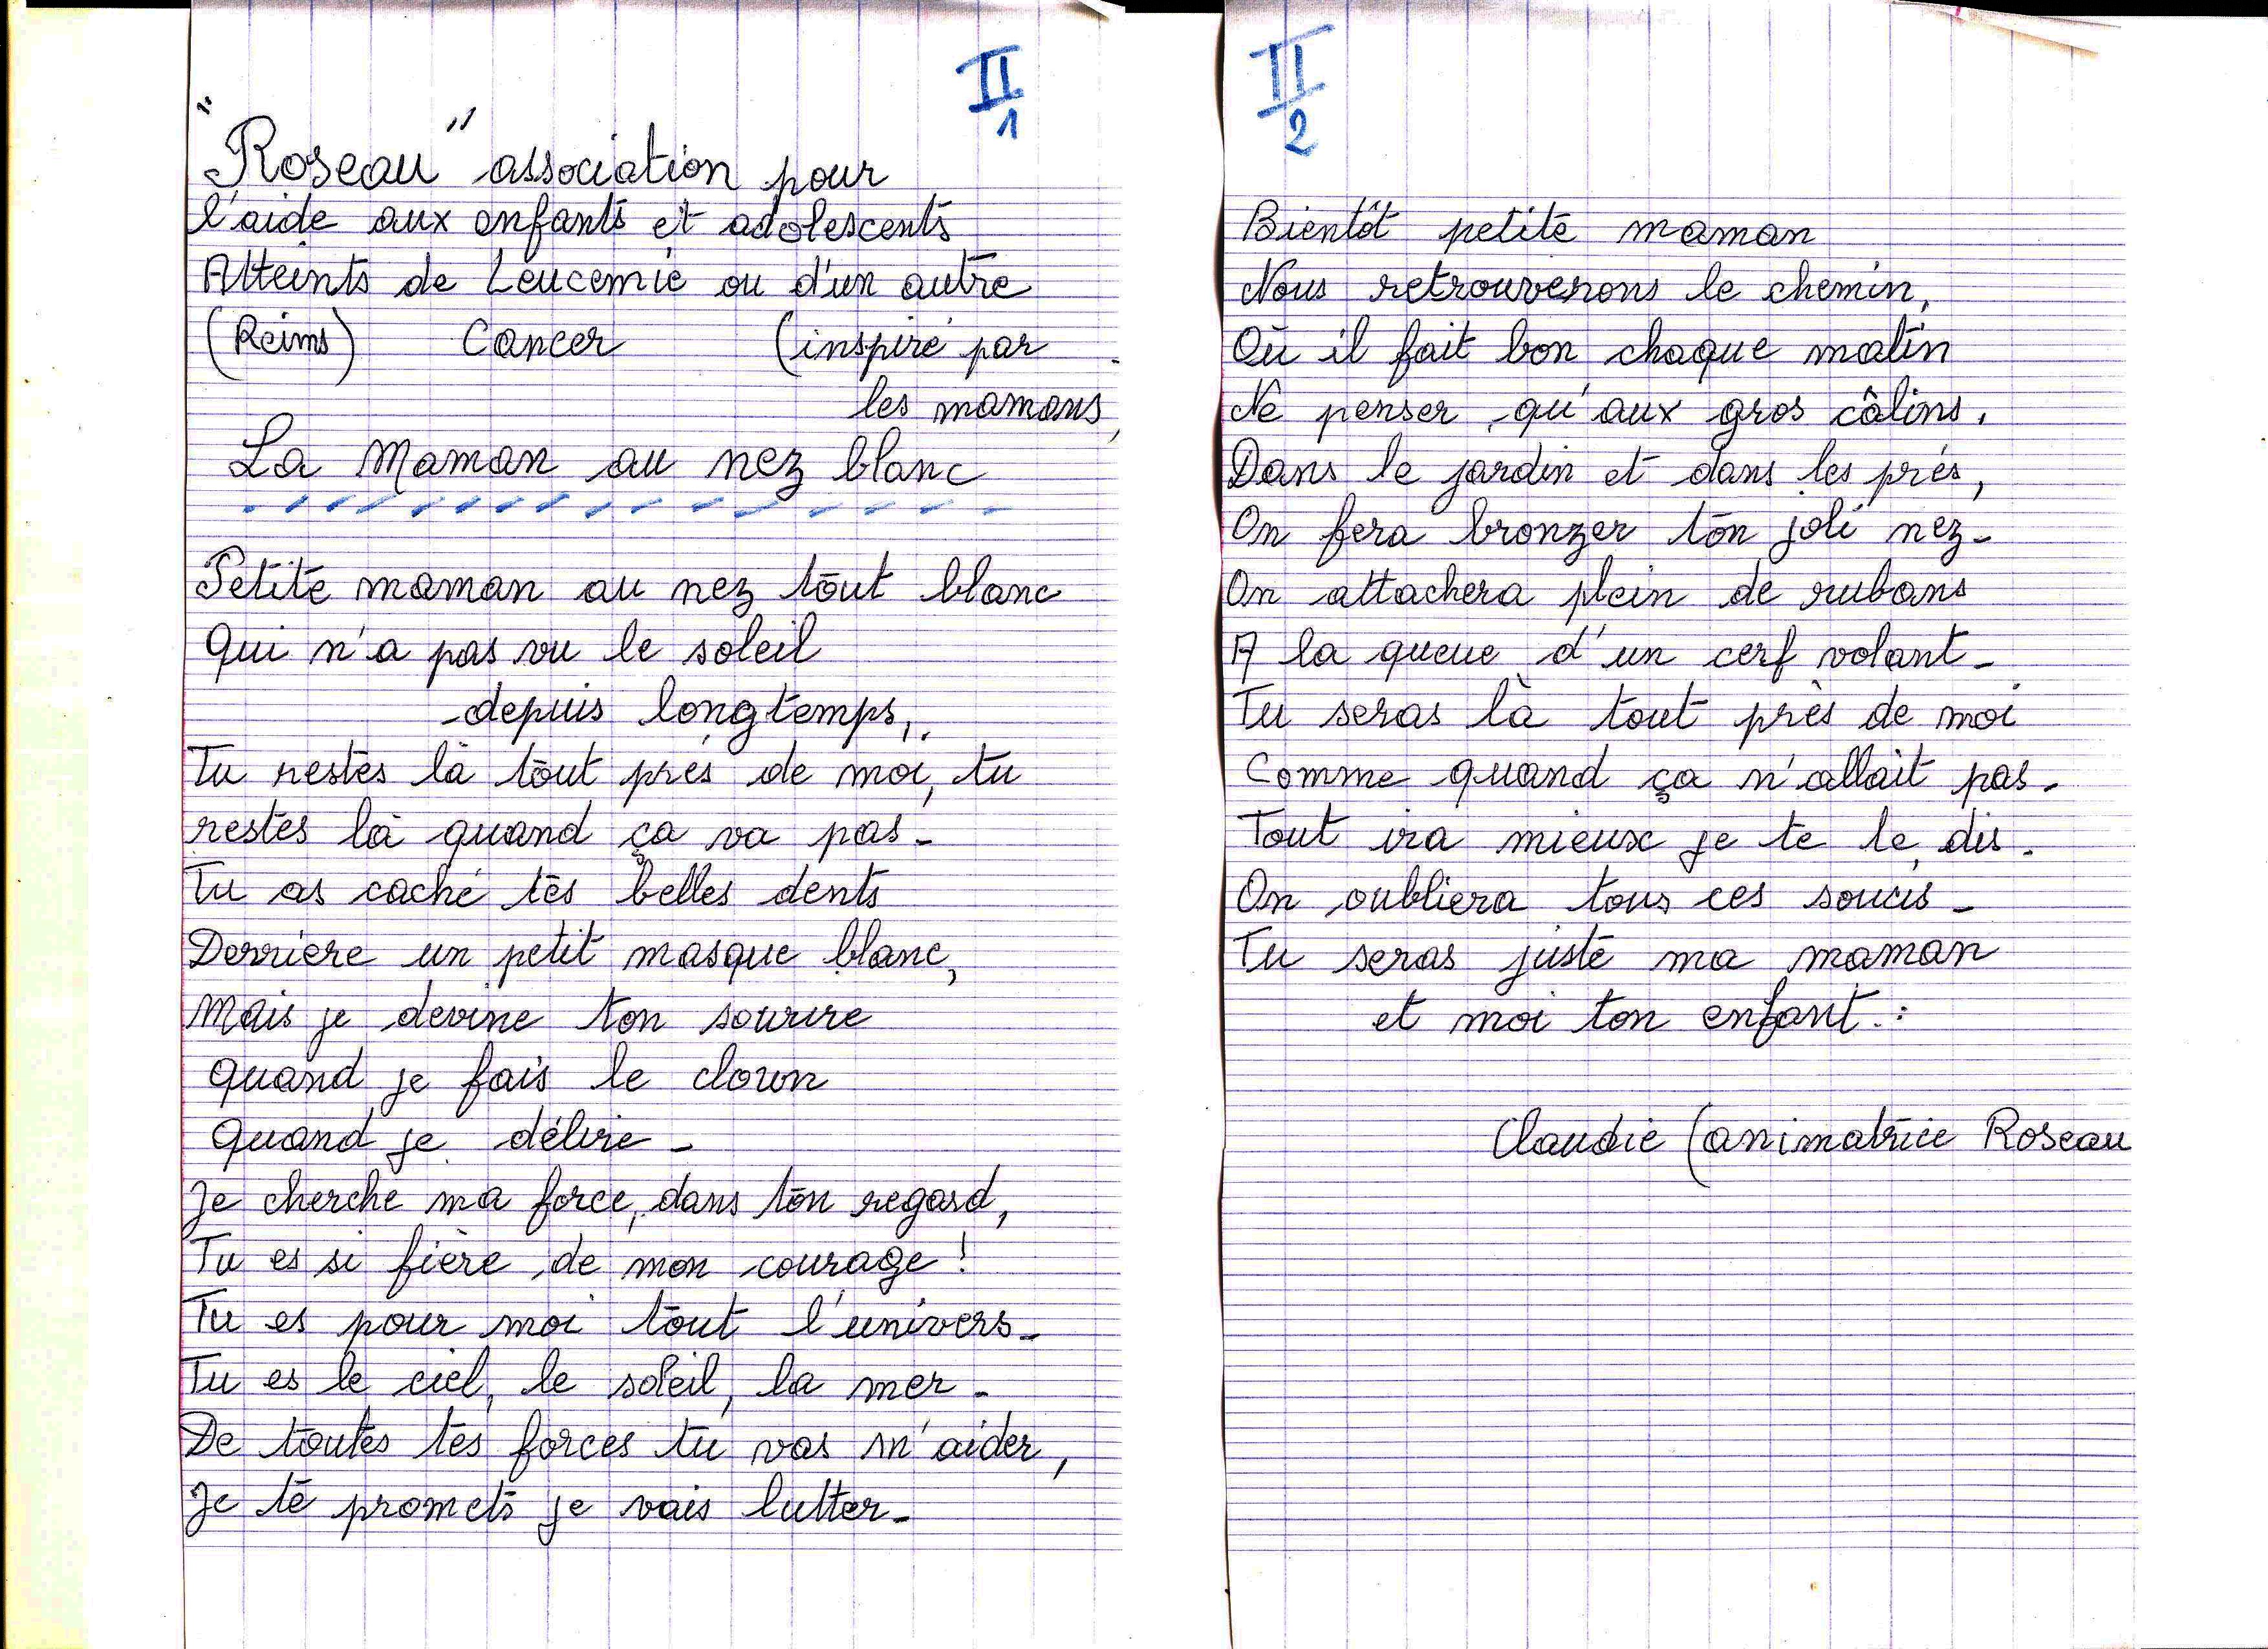 II
1
"Roseau" association pour
l'aide aux enfants et adolescents
Atteints de Leucemie ou d'un autre
(Reims) Cancer (inspiré par
les mamans
La Maman au nez blanc
Petite maman au nez tout blanc
Qui n'a pas vu le soleil
depuis longtemps,
Tu restes là tout près de moi, tu
restes là quand ça va pas-
Tu as caché tes belles dents
Derriere un petit masque blanc,
Mais je devine ton sourire
Quand je fais le clown
Quand je délire-
Je cherche ma force, dans ton regard,
Tu es si fière de mon courage !
Tu es pour moi tout l'univers-
Tu es le ciel, le soleil, la mer-
De toutes tes forces tu vas m'aider,
Je te promets je vais lutter-
II
2
Bientôt petite maman
Nous retrouverons le chemin,
Où il fait bon chaque matin
Ne penser qu'aux gros câlins.
Dans le jardin et dans les prés,
On fera bronzer ton joli nez-
On attachera plein de rubans
A la queue d'un cerf volant-
Tu seras là tout près de moi
Comme quand ça n'allait pas-
Tout ira mieux je te le dis-
On oubliera tous ces soucis-
Tu seras juste ma maman
et moi ton enfant.:
Claudie (animatrice Roseau